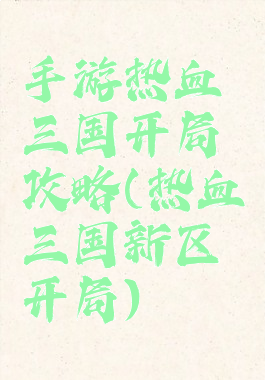 手游热血
三国开局
攻略(热血
三国新区
开局)